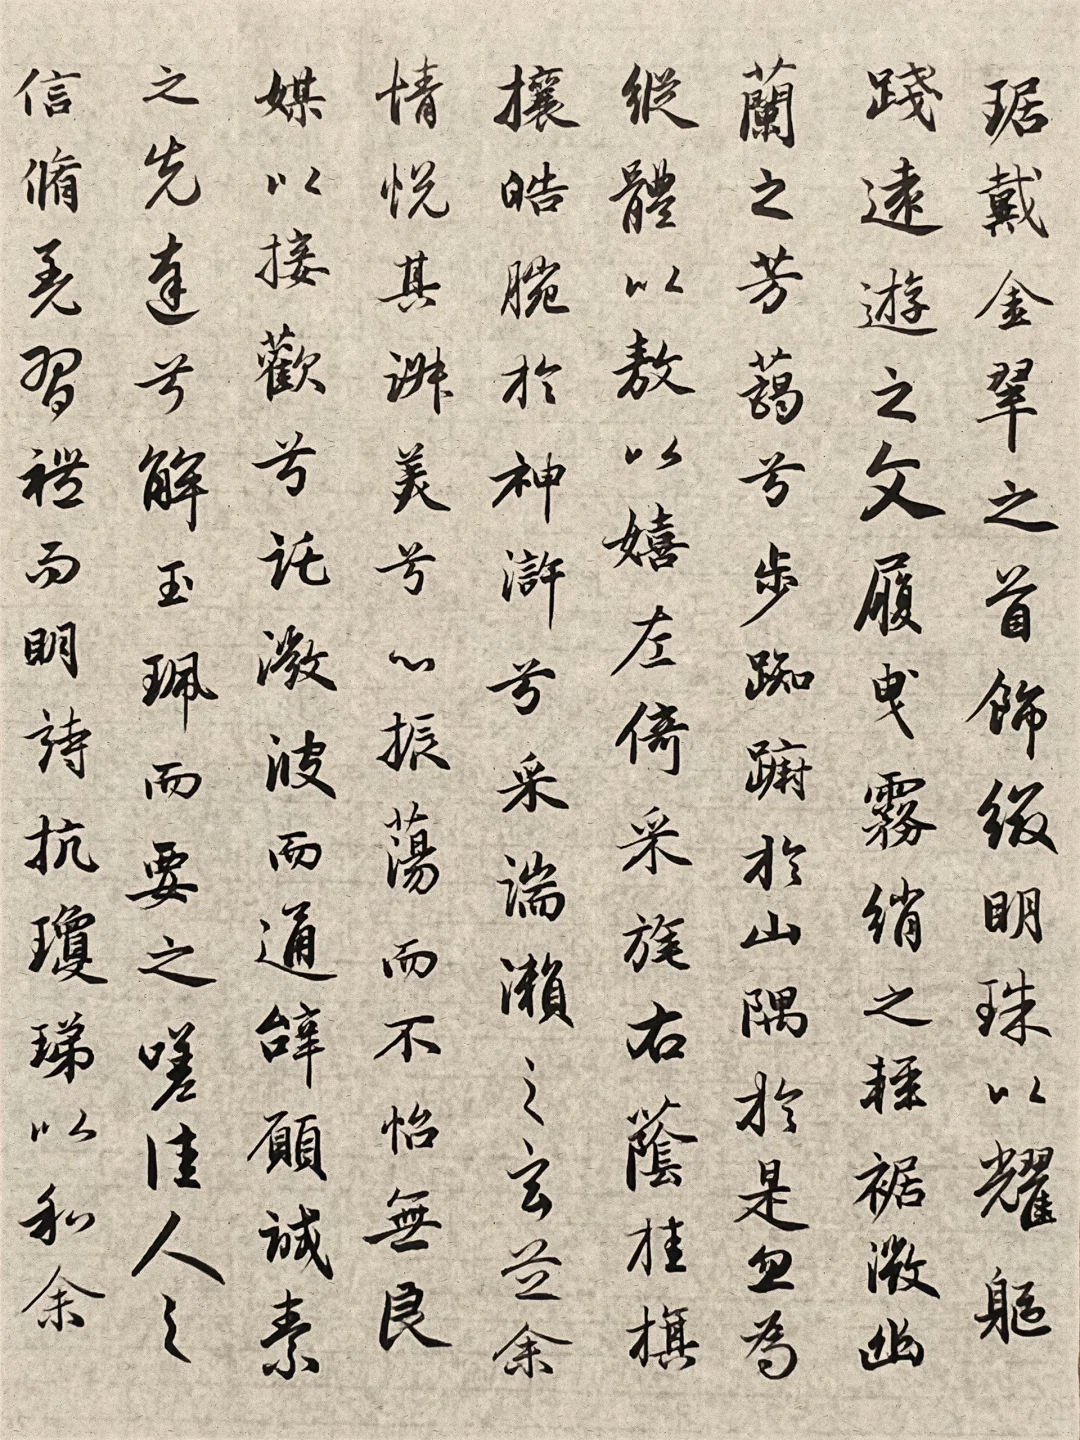 琚戴金翠之首飾綴明珠以耀軀
踐遠遊之文履曳霧綃之輕裾微幽
蘭之芳藹兮步踟躕於山隅於是忽焉
縱體以敖以嬉左倚采旄右蔭桂旗
攘皓腕於神滸兮采湍瀨之玄芝余
情悅其淑美兮心振蕩而不怡無良
媒以接歡兮託微波而通辭願誠素
之先達兮解玉珮而要之嗟佳人之
信脩羌習禮而明詩抗瓊珶以和余